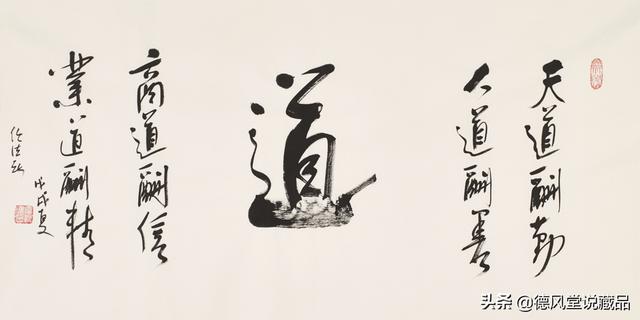 天道酬勤
人道酬善
道
商道酬信
業道酬精
戊戌夏
头条 @德风堂说藏品